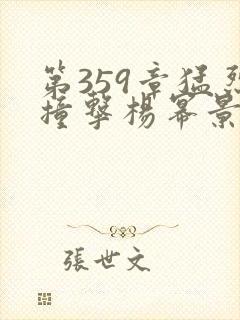 第359章猛烈
撞擊楊冪景
張世文